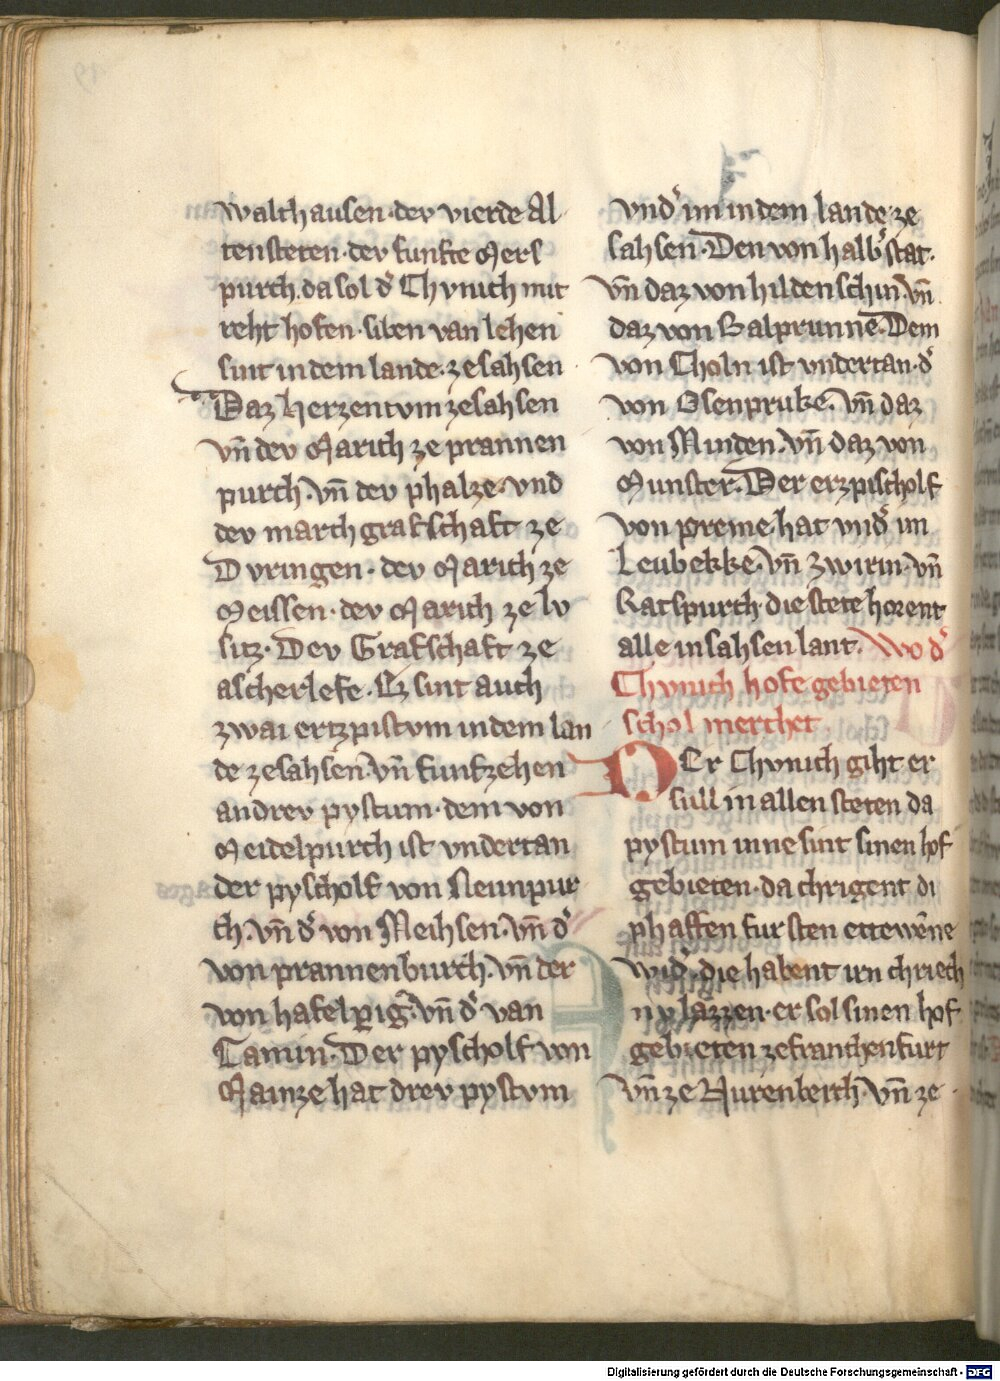 walthausen · der vierde Al
tensteten · der funfte Mers
purch · da sol dˀ Chvnich mit
reht hofen · siben van lehen
sint in dem lande · ze sahsen
Daz herzentvm ze sahsen
vn̄ dev Marich ze prannen
purch · vn̄ dev phalze · vnd
dev march grafschaft ze
Dvringen · dev Marich ze
Meissen · dev Marich ze lv
sitz · Dev Grafschaft ze
ascherlefe · Ez sint auch
zwai ertzpistvm in dem lan
de ze sahsen · vn̄ funfzehen
andrev pystum · dem von
Meidelpurch ist vndertan
der pyscholf von Neunpur
ch · vn̄ dˀ von Meihsen · vn̄ dˀ
von prannenburch · vn̄ der
von hafelpig · vn̄ dˀ van
Camin · Der pyscholf von
Mainze hat drev pystvm
vndˀ im in dem lande ze
sahsen · Den von halbˀstat ·
vn̄ daz von hildenschin · vn̄
daz von Balprunne · Dem
von Choln ist vndertan · dˀ
von Osenpruke · vn̄ daz
von Minden · vn̄ daz von
Munster · Der erzpischolf
von preme hat vndˀ im
Leubekke · vn̄ Zwirin · vn̄
Ratspurch die stete horent
alle in sahsen lant · Wo dˀ
Chvnich hofe gebieten
schol merchet
DEr Chvnich giht er
sull in allen steten da
pystum inne sint sinen hof
gebieten · da chrigent di
phaffen fursten ettewēne
widˀ · die habent irn chriech
nv lazzen · er sol sinen hof
gebieten ze franchenfurt
vn̄ ze Nurenberch · vn̄ ze
Digitalisierung gefördert durch die Deutsche Forschungsgemeinschaft - DFG